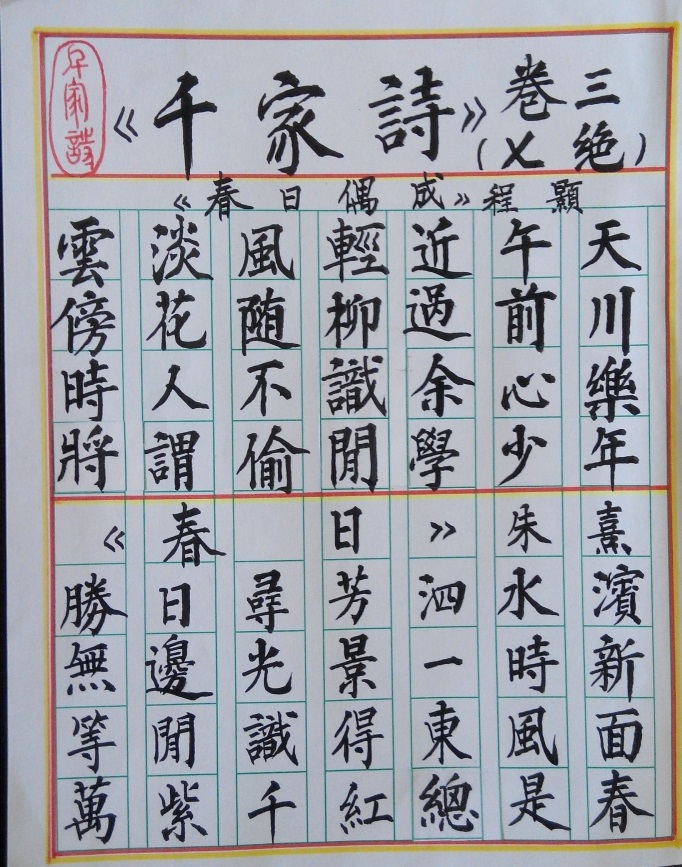 千家詩
《千家詩》卷三
(七绝)
《春日偶成》程顥
雲淡風輕近午天
傍花随柳過前川
時人不識余心樂
将謂偷閒學少年
《春日》朱熹
勝日尋芳泗水濱
無邊光景一時新
等閒識得東風面
萬紫千紅總是春